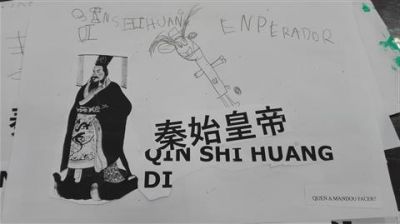 QIN SHI HUANG
DI
ENPERADOR
秦始皇帝
QIN SHI HUANG
DI
QUEN A MANDOU FACER?